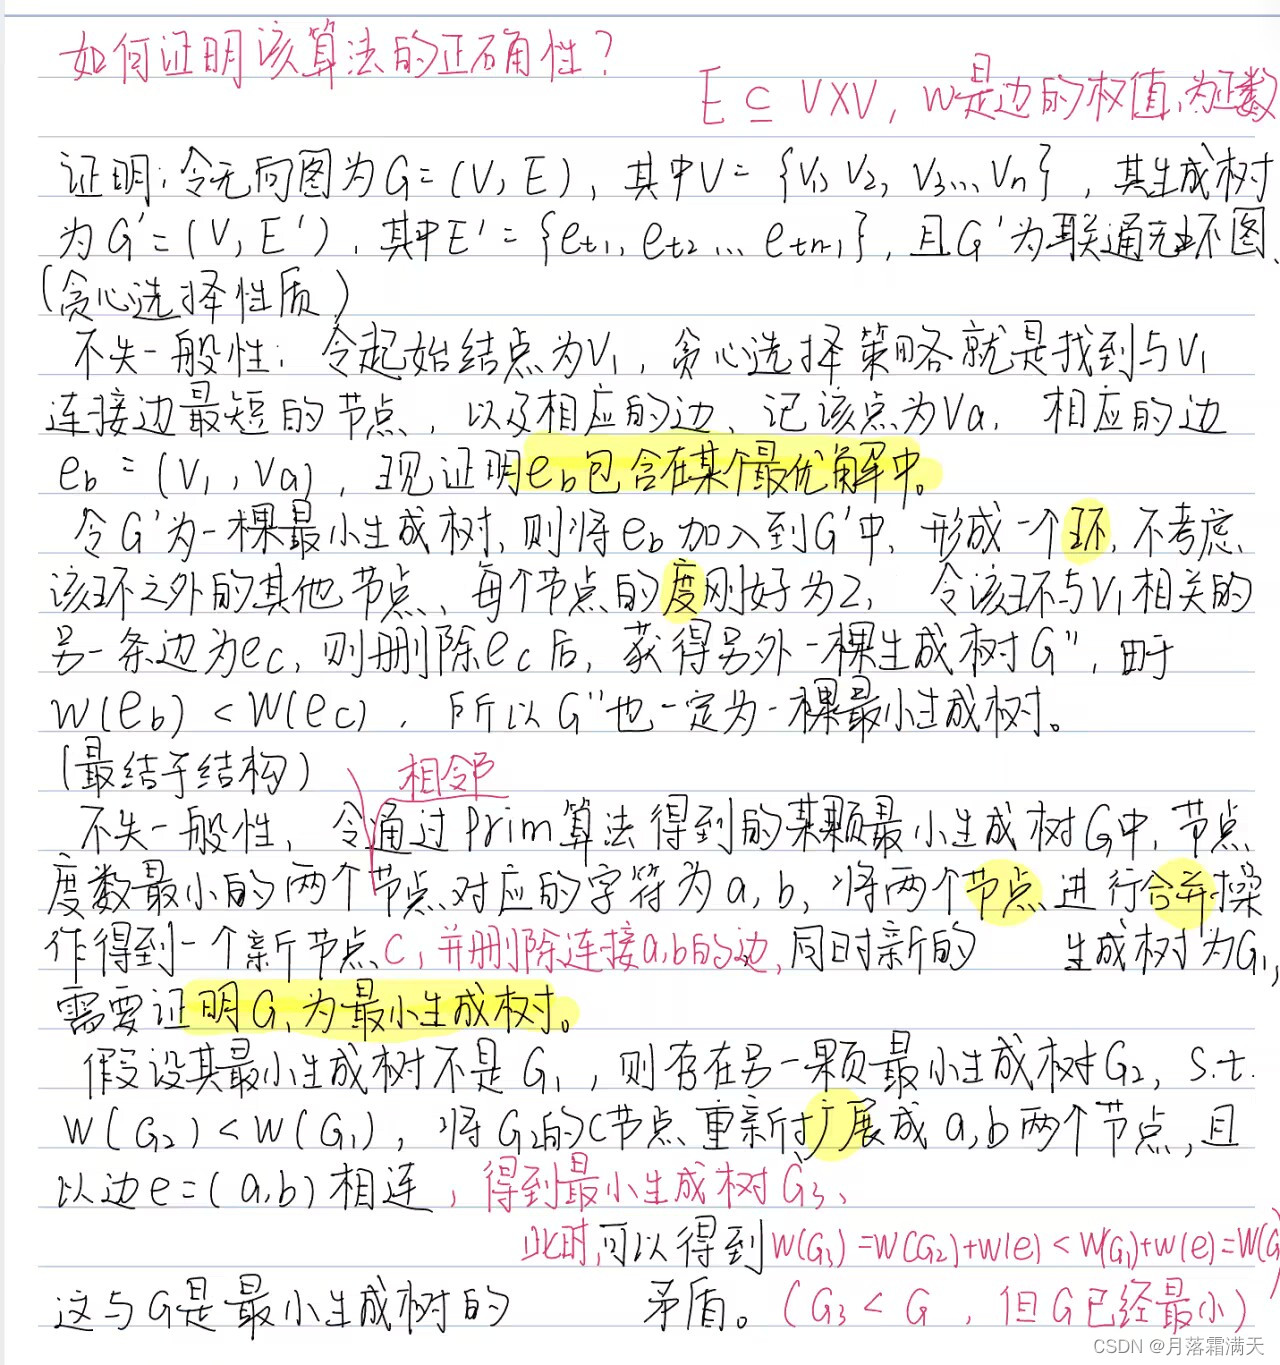 如何证明该算法的正确性?
E ⊆ V×V, w是边的权值,为正数
证明:令无向图为G=(V,E),其中V={V1, V2, V3... Vn},其生成树
为G'=(V,E'),其中E'={et1, et2 ... etn-1},且G'为联通无环图、
(贪心选择性质)
不失一般性:令起始结点为V1,贪心选择策略就是找到与V1
连接边最短的节点,以及相应的边、记该点为Va.相应的边
eb=(V1,Va),现证明eb包含在某个最优解中。
令G'为一棵最小生成树,则将eb加入到G'中,形成一个环,不考虑
该环之外的其他节点、每个节点的度刚好为2,令该环与V1相关的
另一条边为ec,则删除ec后,获得另外一棵生成树G'',由于
W(eb)<W(ec),所以G''也一定为一棵最小生成树。
(最结子结构) 相邻
不失一般性,令通过Prim算法得到的某颗最小生成树G中,节点
度数最小的两个节点对应的字符为a,b,将两个节点进行合并操
作得到一个新节点C,并删除连接a,b的边,同时新的 生成树为G1,
需要证明G1为最小生成树。
假设其最小生成树不是G1,则存在另一颗最小生成树G2, s.t.
W(G2)<W(G1),将G2的C节点重新扩展成a,b两个节点,且
以边e=(a,b)相连,得到最小生成树G3、
此时,可以得到W(G3)=W(G2)+W(e)<W(G1)+w(e)=W(G)
这与G是最小生成树的 矛盾。(G3<G,但G已经最小)
CSDN @月落霜满天